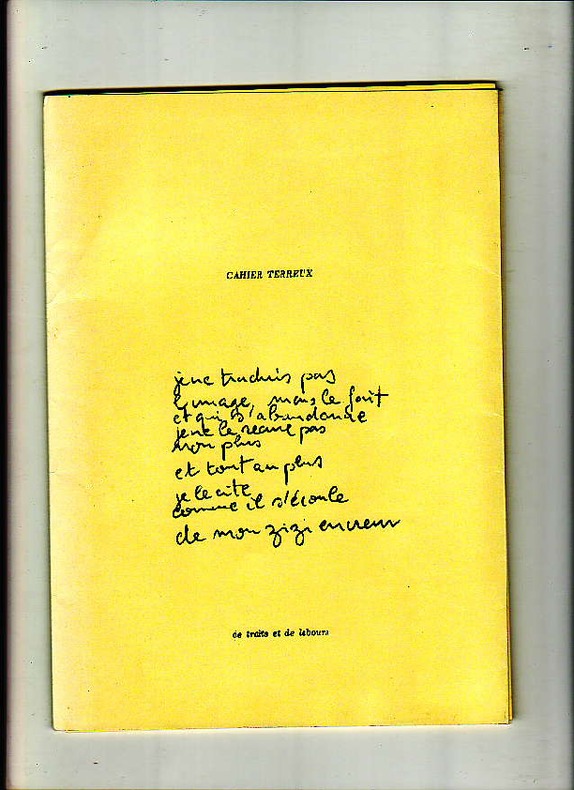 CAHIER TERREUX
je ne traduis pas
l'image, mais le fait
et qui s'abandonne
je ne le renie pas
non plus
et tout au plus
je le cite
comme il s'écoule
de mon zizi encreur
de traits et de labours